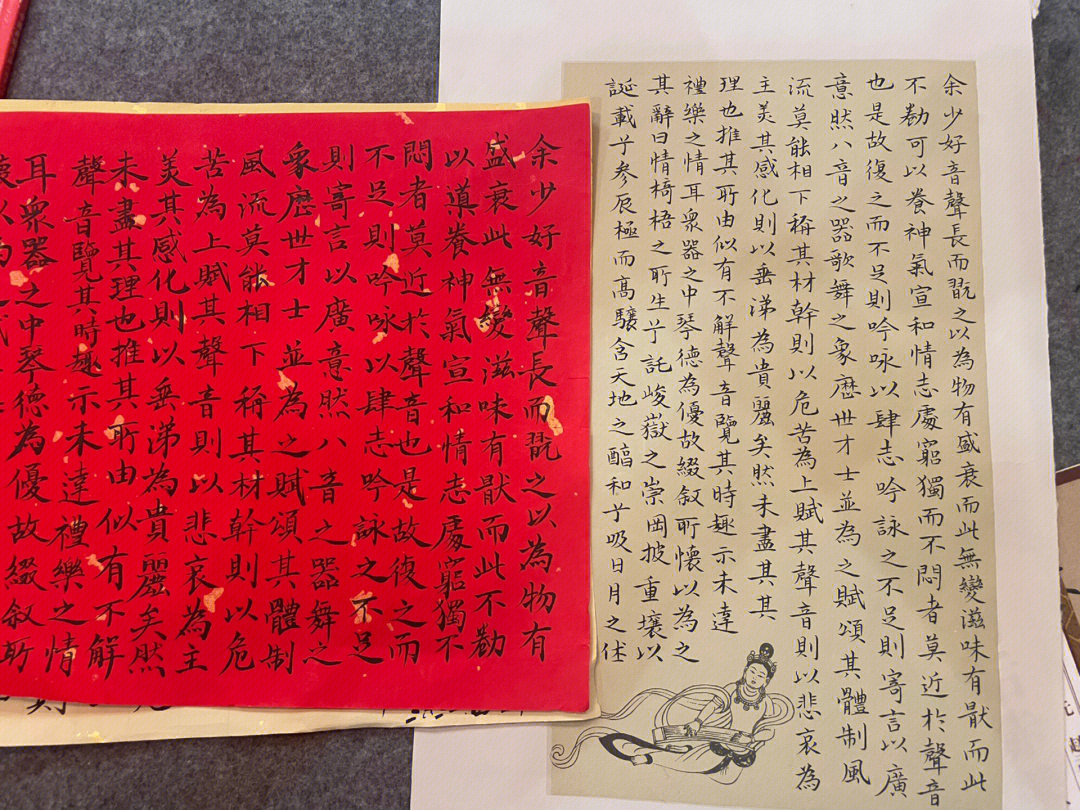 余少好音聲長而翫之以為物有盛衰而此無變滋味有猒而此
不勌可以養神氣宣和情志處窮獨而不悶者莫近於聲音
也是故復之而不足則吟咏以肆志吟詠之不足則寄言以廣
意然八音之器歌舞之象歷世才士並為之賦頌其體制風
流莫能相下稱其材幹則以危苦為上賦其聲音則以悲哀為
主美其感化則以垂涕為貴麗矣然未盡其其
理也推其所由似有不解聲音覽其時趣示未達
禮樂之情耳眾器之中琴德為優故綴敘所懷以為之
其辭曰情椅梧之所生兮託峻嶽之崇岡披重壤以
誕載兮參辰極而高驤含天地之醇和兮吸日月之休
余少好音聲長而翫之以為物有
盛衰此無變滋味有猒而此不勌
以導養神氣宣和情志處窮獨不
悶者莫近於聲音也是故復之而
不足則吟咏以肆志吟詠之不足
則寄言以廣意然八音之器舞之
象歷世才士並為之賦頌其體制
風流莫能相下稱其材幹則以危
苦為上賦其聲音則以悲哀為主
美其感化則以垂涕為貴麗矣然
未盡其理也推其所由似有不解
聲音覽其時趣示未達禮樂之情
耳眾器之中琴德為優故綴敘所
懷以為之